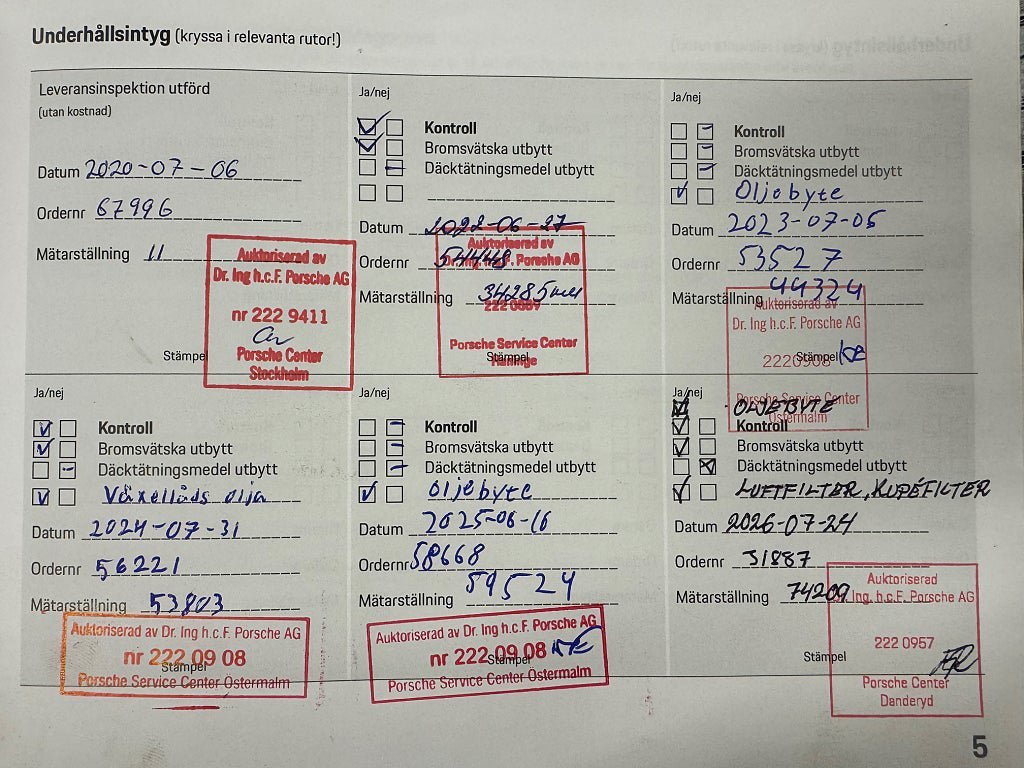 Underhållsintyg (kryssa i relevanta rutor!)
Leveransinspektion utförd
(utan kostnad)
Datum 2020-07-06
Ordernr 67996
Mätarställning 11
Auktoriserad av
Dr. Ing h.c.F. Porsche AG
nr 222 9411
Stämpel
Porsche Center
Stockholm
Ja/nej
Kontroll
Bromsvätska utbytt
Däcktätningsmedel utbytt
Datum 2022-06-27
Ordernr 54448
Mätarställning 34285 km
Auktoriserad av
Dr. Ing h.c.F. Porsche AG
Porsche Service Center
Stämpel
Haninge
Ja/nej
Kontroll
Bromsvätska utbytt
Däcktätningsmedel utbytt
Oljebyte
Datum 2023-07-05
Ordernr 53527
Mätarställning 44324
Auktoriserad av
Dr. Ing h.c.F. Porsche AG
222 0908
Stämpel
Porsche Service Center
Östermalm
Ja/nej
Kontroll
Bromsvätska utbytt
Däcktätningsmedel utbytt
Växellåds olja
Datum 2024-07-31
Ordernr 56221
Mätarställning 53803
Auktoriserad av Dr. Ing h.c.F. Porsche AG
nr 222 09 08
Stämpel
Porsche Service Center Östermalm
Ja/nej
Kontroll
Bromsvätska utbytt
Däcktätningsmedel utbytt
Oljebyte
Datum 2025-06-16
Ordernr 58668
Mätarställning 59524
Auktoriserad av Dr. Ing h.c.F. Porsche AG
nr 222 09 08
Stämpel
Porsche Service Center Östermalm
Ja/nej
OLJEBYTE
Kontroll
Bromsvätska utbytt
Däcktätningsmedel utbytt
LUFTFILTER, KUPÉFILTER
Datum 2026-07-24
Ordernr 31887
Mätarställning 74209
Auktoriserad
Dr. Ing. h.c.F. Porsche AG
222 0957
Stämpel
Porsche Center
Danderyd
5